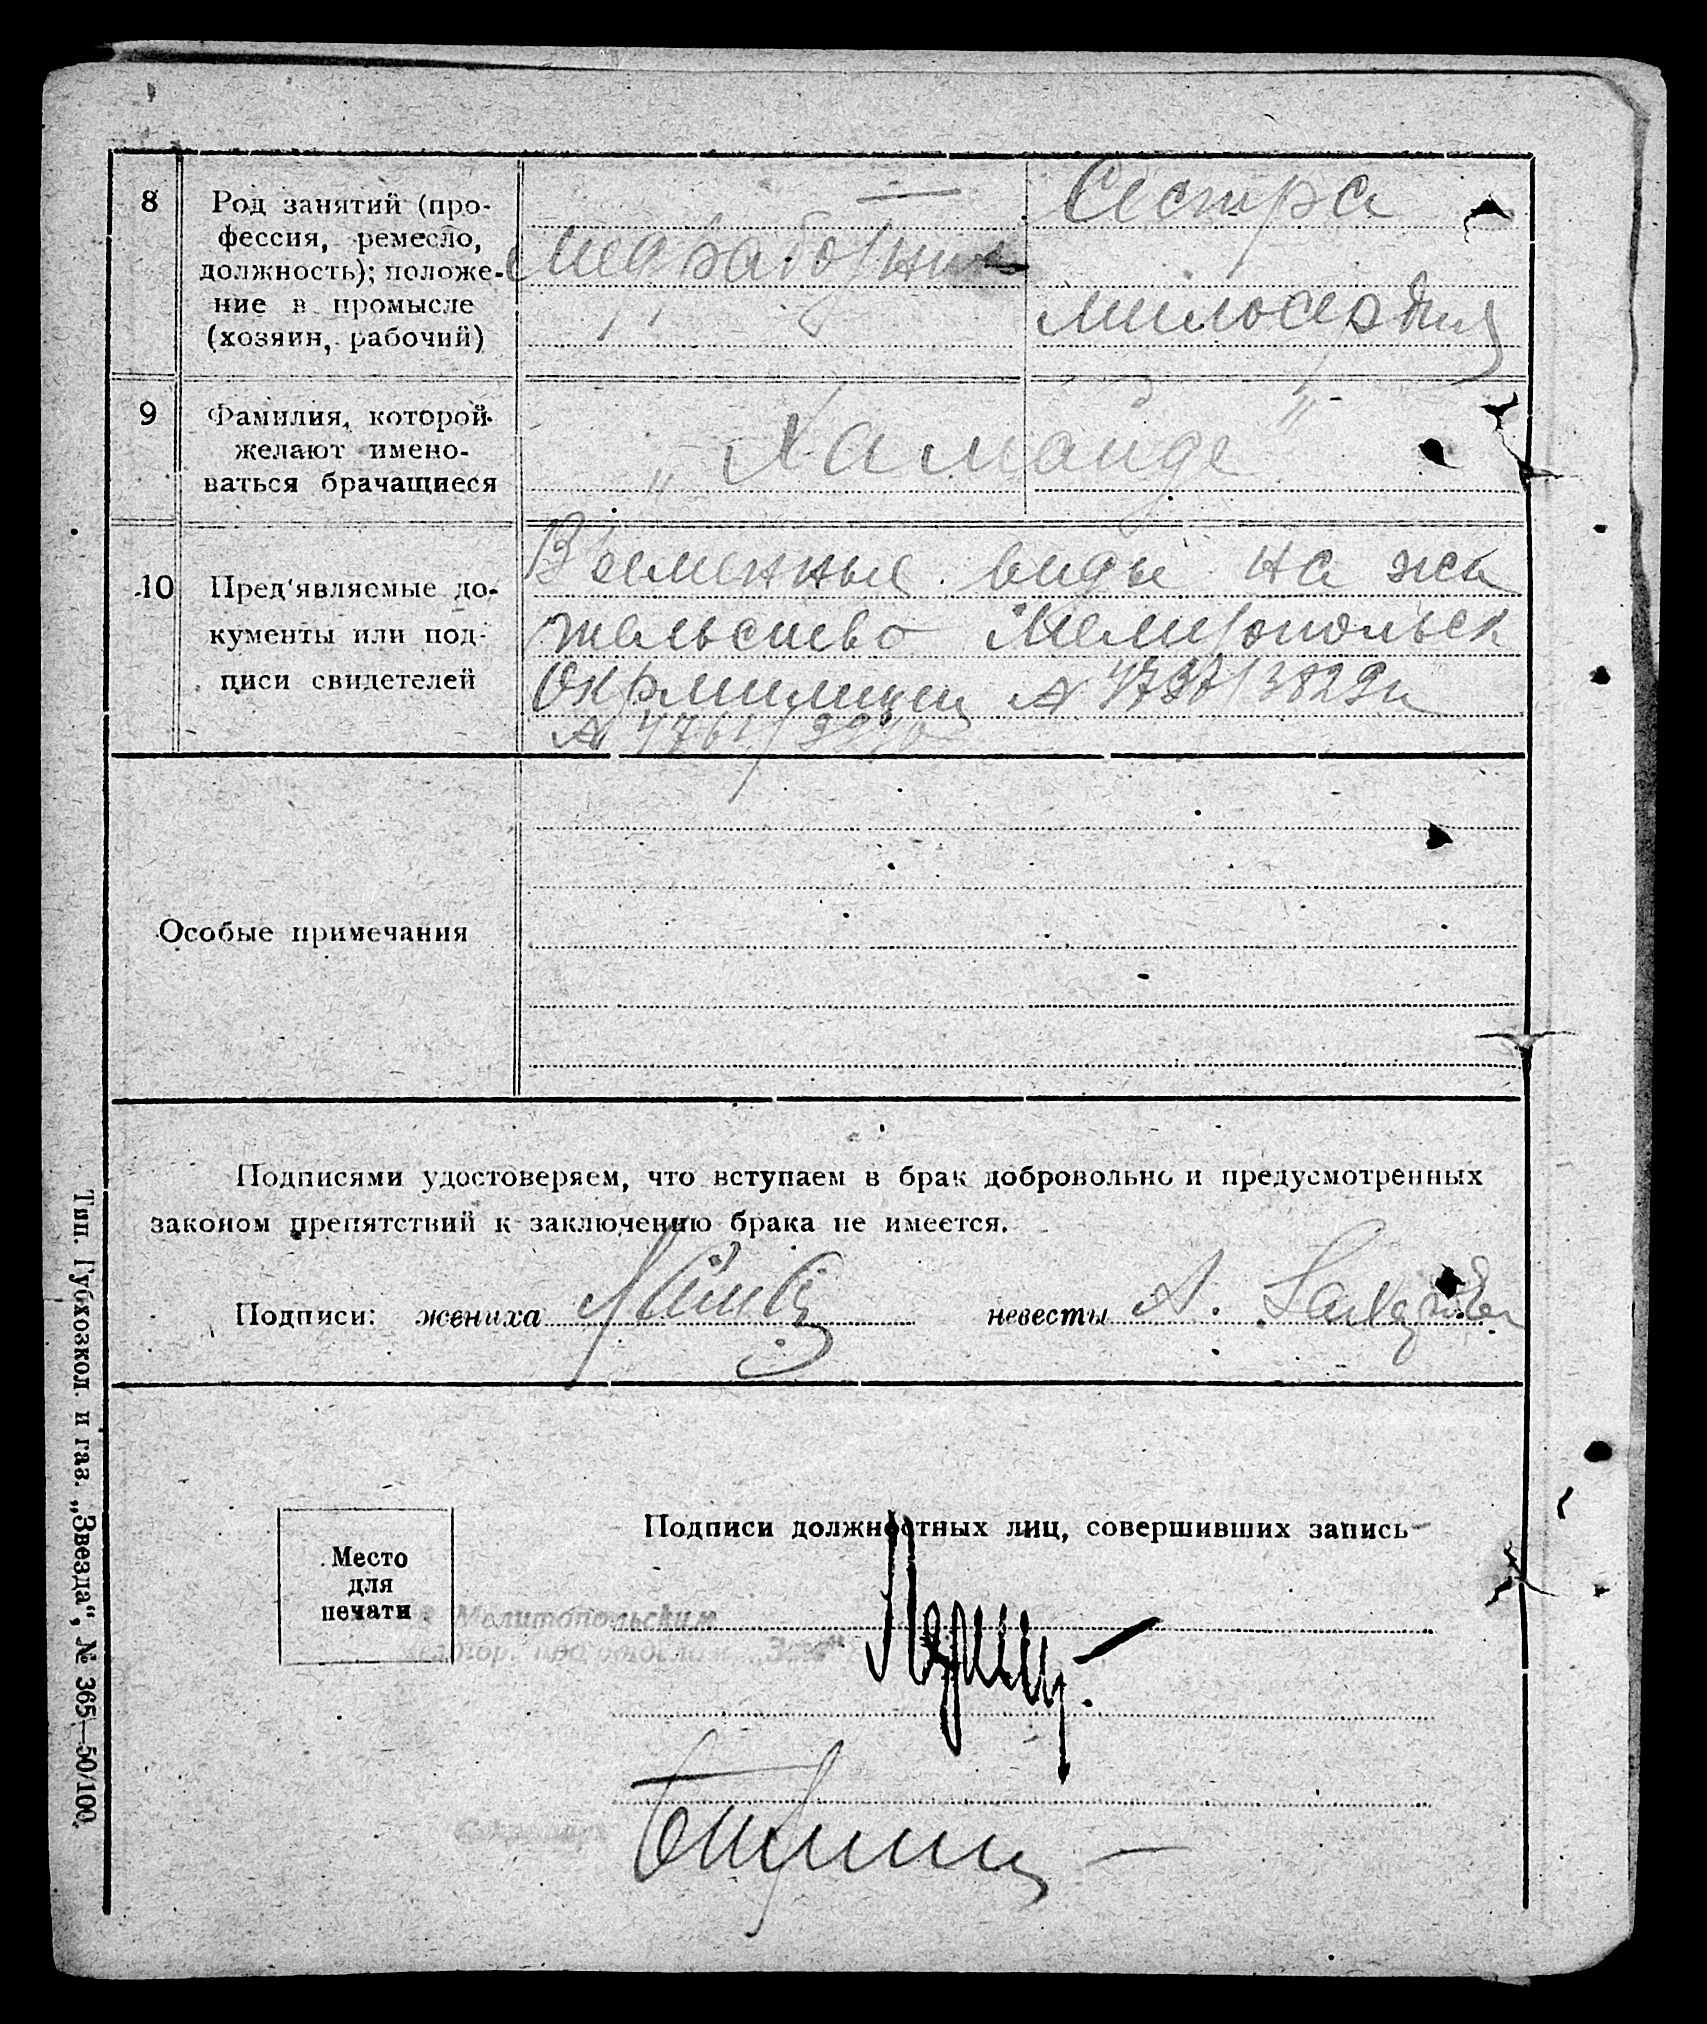 8
Род занятий (про-
фессия, ремесло,
должность); положе-
ние в промысле
(хозяин, рабочий)
Сестра
милосердия
9
Фамилия, которой
желают имено-
ваться брачащиеся
10
Пред'являемые до-
кументы или под-
писи свидетелей
Временные виды на жи
тельство Мелитопольск
Окрмилиции №
Особые примечания
Подписями удостоверяем, что вступаем в брак добровольно и предусмотренных
законом препятствий к заключению брака не имеется.
Подписи: жениха
невесты А.
Подписи должностных лиц, совершивших запись
Место
для
печати
Мелитопольским
Тип. Губхозкол. и газ. „Звезда", № 365—50/100.